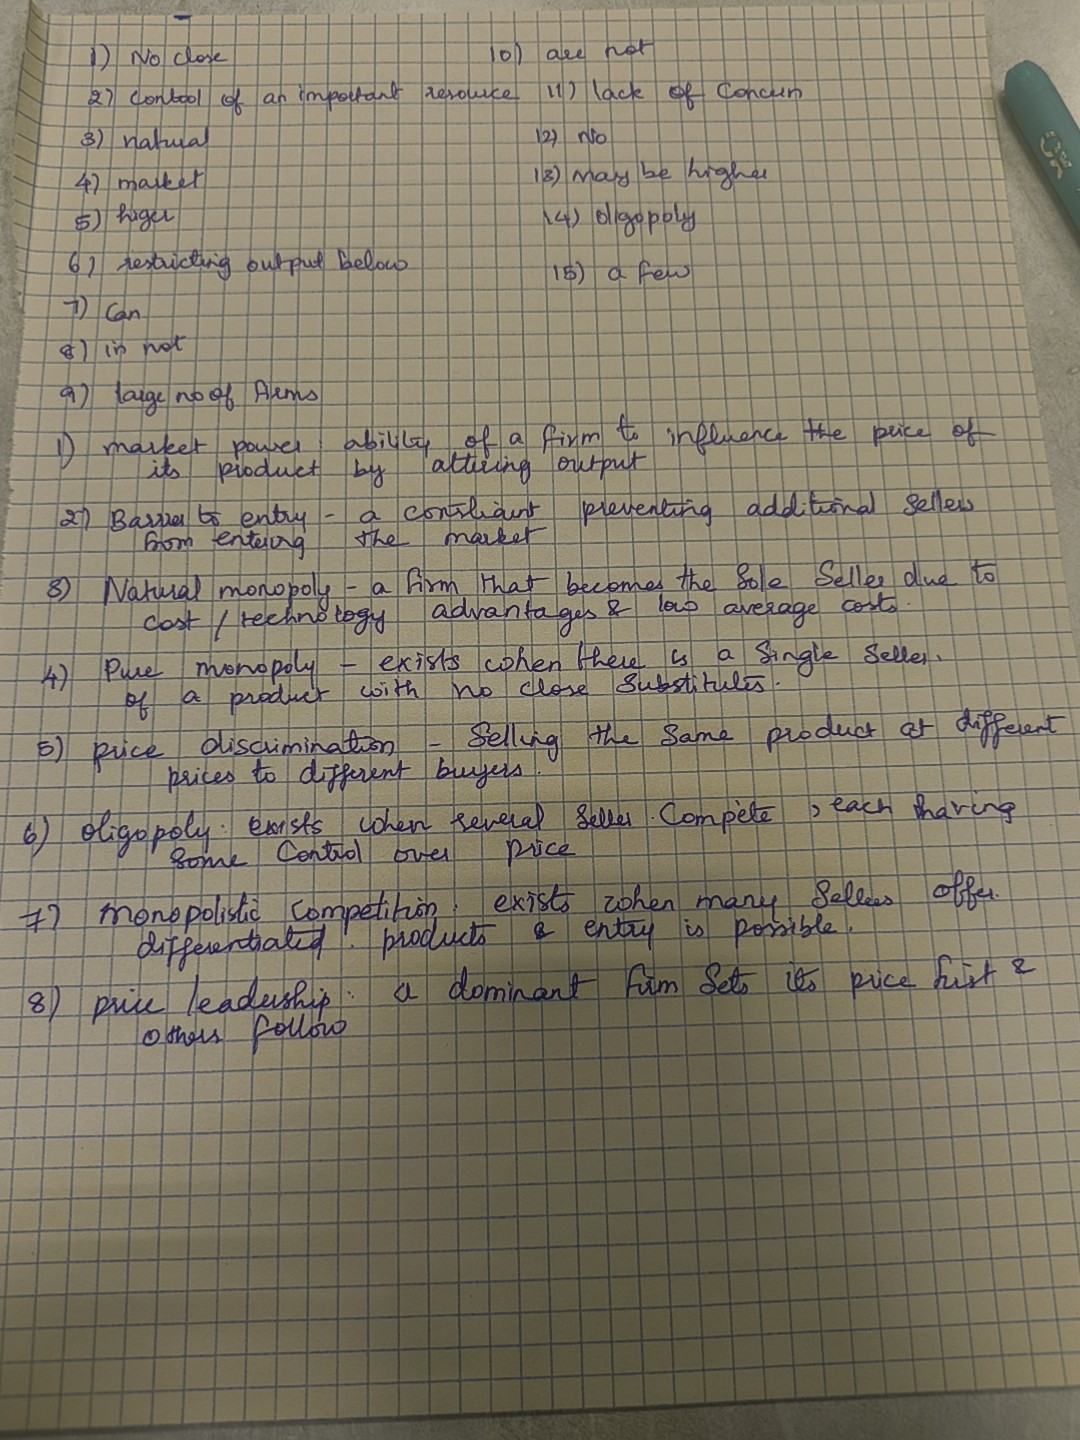 1) No close
10) are not
2) control of an important resource
11) lack of concern
3) natural
12) No
4) market
13) may be higher
5) higer
14) oligopoly
6) restricting output below
15) a few
7) Can
8) is not
9) large no of firms
1) market power : ability of a firm to influence the price of
its product by altering output
2) Barrier to entry - a constraint preventing additional Sellers
from entering the market
3) Natural monopoly - a firm that becomes the Sole Seller due to
cost / technology advantages & low average costs.
4) Pure monopoly - exists when there is a Single Seller.
of a product with no close Substitutes.
5) price discrimination - Selling the Same product at different
prices to different buyers.
6) oligopoly : exists when several Seller Compete , each having
Some Control over price
7) monopolistic Competition : exists when many Sellers offer
differentiated products & entry is possible.
8) price leadership : a dominant firm Sets its price first &
others follow